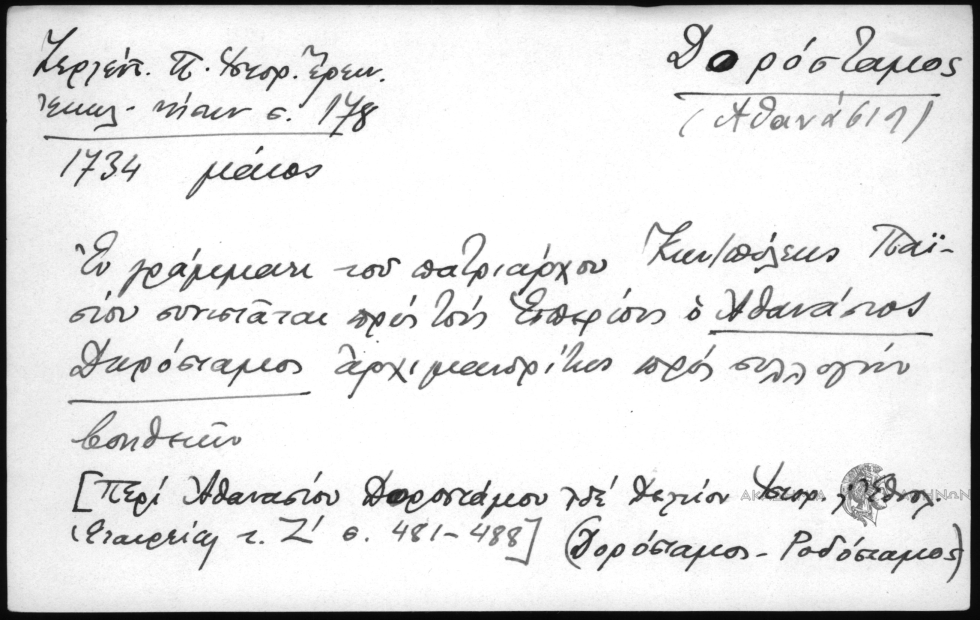 Ζερλέντ. Π. Ἱστορ. Ἔρευν.
Ἐκκλ. νήσων σ. 178
Δορόσταμος
(Ἀθανάση)
1734 μάϊος
Ἐν γράμματι τοῦ πατριάρχου Κων/πόλεως Παϊ-
σίου συνιστᾶται πρὸς τοὺς ὁ Ἀθανάσιος
Δωρόσταμος ἀρχιμανδρίτης πρὸς συλλογὴν
βοηθειῶν
[Περὶ Ἀθανασίου Δοροστάμου ἰδὲ Δελτίον Ἱστορ. Ἐθνολ.
Ἑταιρείας τ. Ζ' σ. 481-488] (Δορόσταμος - Ροδόσταμος)